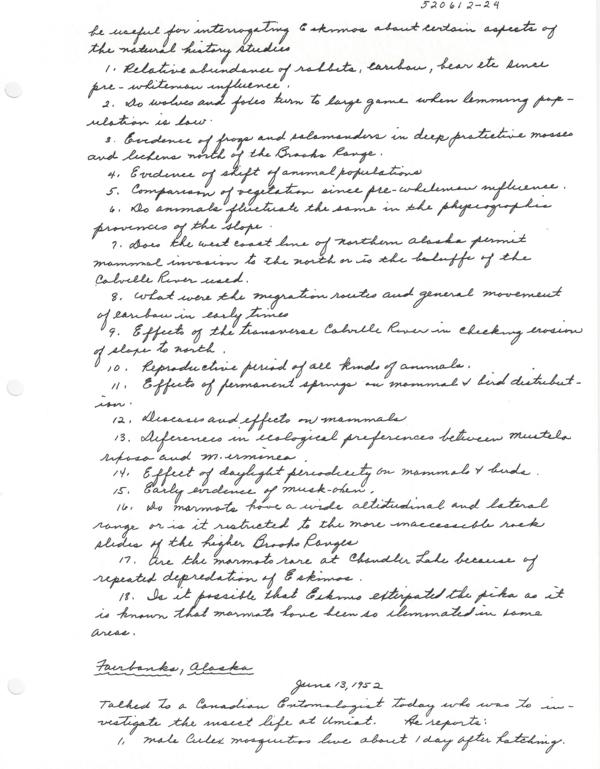 520612-24
be useful for interrogating Eskimos about certain aspects of
the natural history studies
1. Relative abundance of rabbits, caribou, bear etc since
pre-whiteman influence.
2. Do wolves and foxes turn to large game when lemming pop-
ulation is low.
3. Evidence of frogs and salamanders in deep protective mosses
and lichens north of the Brooks Range.
4. Evidence of shift of animal populations
5. Comparison of vegetation since pre-whiteman influence.
6. Do animals fluctuate the same in the physiographic
provinces of the slope.
7. Does the west coast line of northern Alaska permit
mammal invasion to the north or is the bluffs of the
Colville River used.
8. What were the migration routes and general movement
of caribou in early times
9. Effects of the transverse Colville River in checking erosion
of slope to north.
10. Reproductive period of all kinds of animals.
11. Effects of permanent springs on mammal & bird distribut-
ion.
12. Diseases and effects on mammals
13. Diferences in ecological preferences between Mustela
rixosa and M. erminea.
14. Effect of daylight periodicity on mammals & birds.
15. Early evidence of musk-oxen.
16. Do marmots have a wide altitudinal and lateral
range or is it restricted to the more inaccessible rock
slides of the higher Brooks Ranges
17. Are the marmots rare at Chandler Lake because of
repeated depredation of Eskimos.
18. Is it possible that Eskimo exterpated the pika as it
is known that marmots have been so iliminated in some
areas.
Fairbanks, Alaska
June 13, 1952
Talked to a Canadian Entomologist today who was to in-
vestigate the insect life at Umiat. He reports:
1. male Culex mosquitoes live about 1 day after hatching.